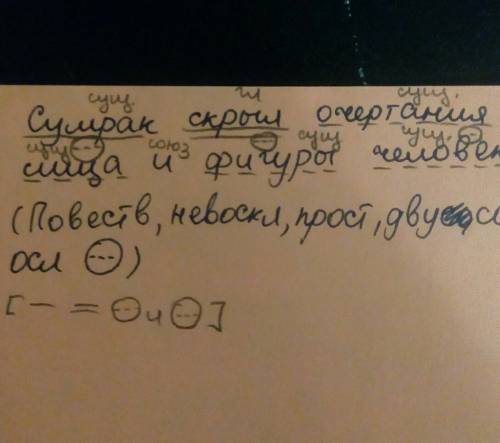 сущ. гл сущ.
Сумрак скрыл очертания
сущ союз сущ сущ.
лица и фигуры человек
(Повеств, невоскл, прост, двус
осл )
[ — = и ]